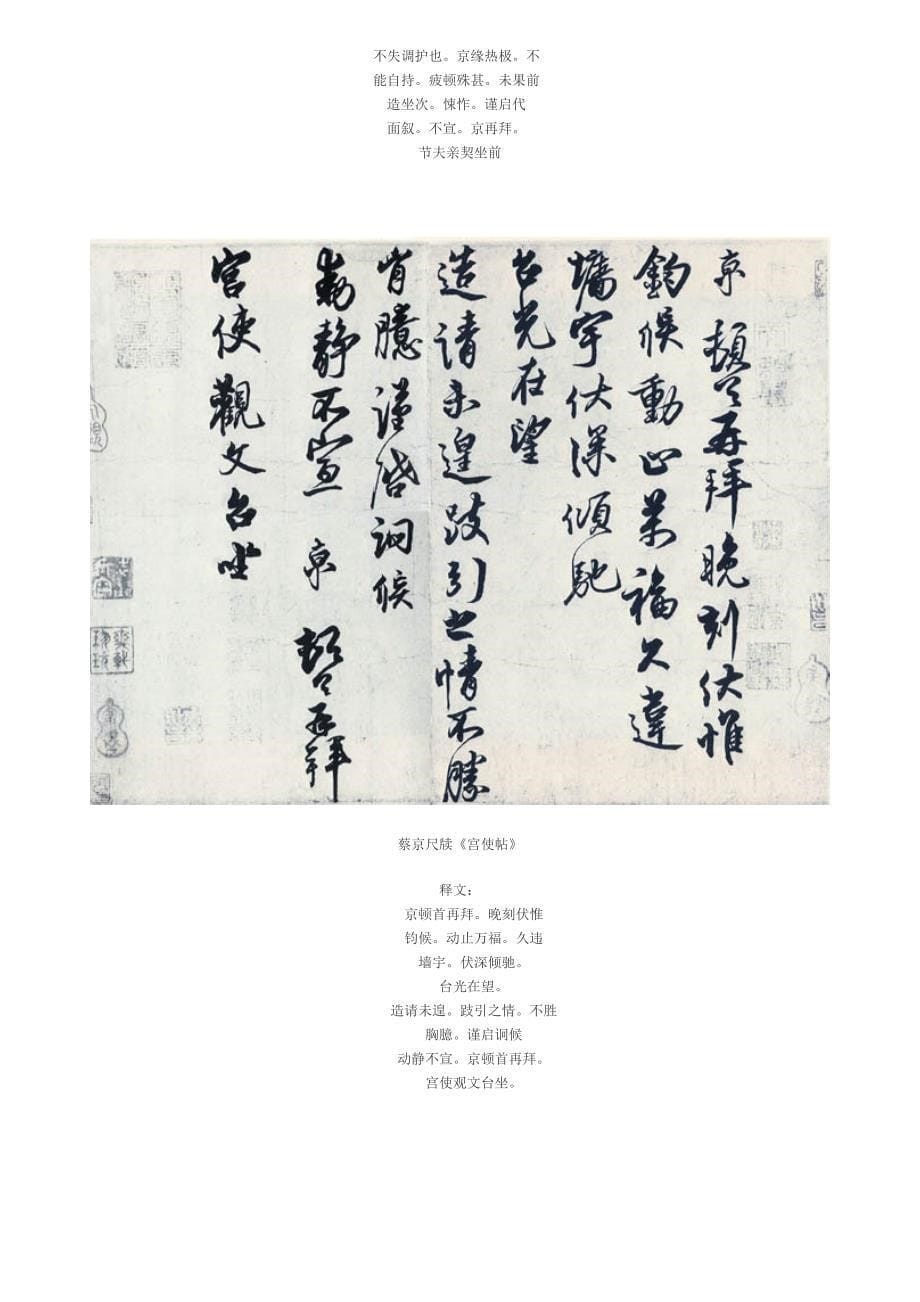 不失调护也。京缘热极。不
能自持。疲顿殊甚。未果前
造坐次。悚怍。谨启代
面叙。不宣。京再拜。
节夫亲契坐前
京頓首再拜晚刻伏惟
鈞候動止萬福久違
墻宇伏深傾馳
台光在望
造請未遑跂引之情不勝
胷臆謹啓詗候
動靜不宣京頓首再拜
宫使觀文台坐
蔡京尺牍《宫使帖》
释文：
京顿首再拜。晚刻伏惟
钧候。动止万福。久违
墙宇。伏深倾驰。
台光在望。
造请未遑。跂引之情。不胜
胸臆。谨启诇候
动静不宣。京顿首再拜。
宫使观文台坐。